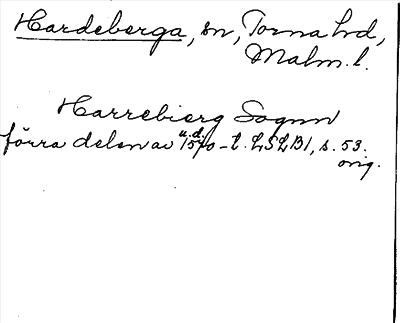 Hardeberga, sn, Torna hd,
Malm. l.
Harrebierg Sognn
u.d.
förra delen av 1570-t. LSLB1, s. 53.
orig.